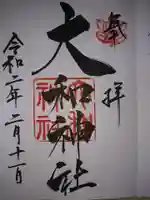 奉拝
大和神社
令和二年二月十一日